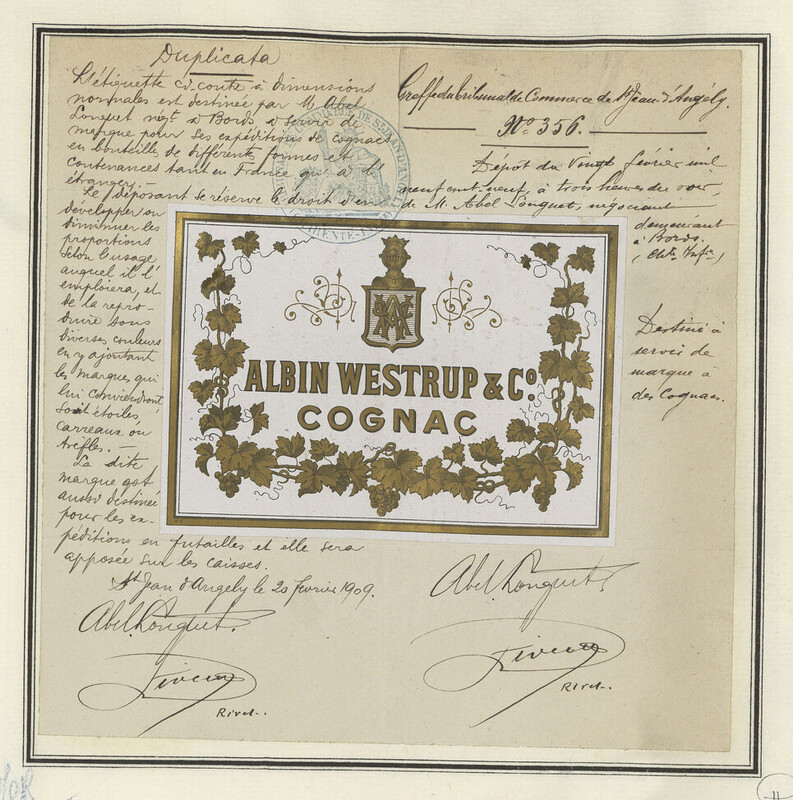 Duplicata
L'étiquette ci-contre à dimensions
normales est destinée par M. Abel
Longuet négt. à Bords à servir de
marque pour ses expéditions de cognacs
en bouteille de différentes formes et
contenances tant en France qu'à l'
étranger.
Le déposant se réserve le droit d'en
développer ou
diminuer les
proportions
selon l'usage
auquel il l'
emploiera, et
de la repro-
duire sous
diverses couleurs
en y ajoutant
les marques qui
lui conviendront
soit étoiles
carreaux ou
trèfles. —
La dite
marque est
aussi destinée
pour les ex-
péditions en futailles et elle sera
apposée sur les caisses.
St Jean d'Angely le 20 février 1909.
Abel Longuet
Rivet
Greffe du Tribunal de Commerce de St Jean d'Angély.
No 356.
Dépôt du vingt février mil
neuf cent neuf, à trois heures du soir,
de M. Abel Longuet, négociant
demeurant
à Bords.
(Chte Infre)
Destiné à
servir de
marque à
des Cognacs.
ALBIN WESTRUP & Co.
COGNAC
Abel Longuet
Rivet
11